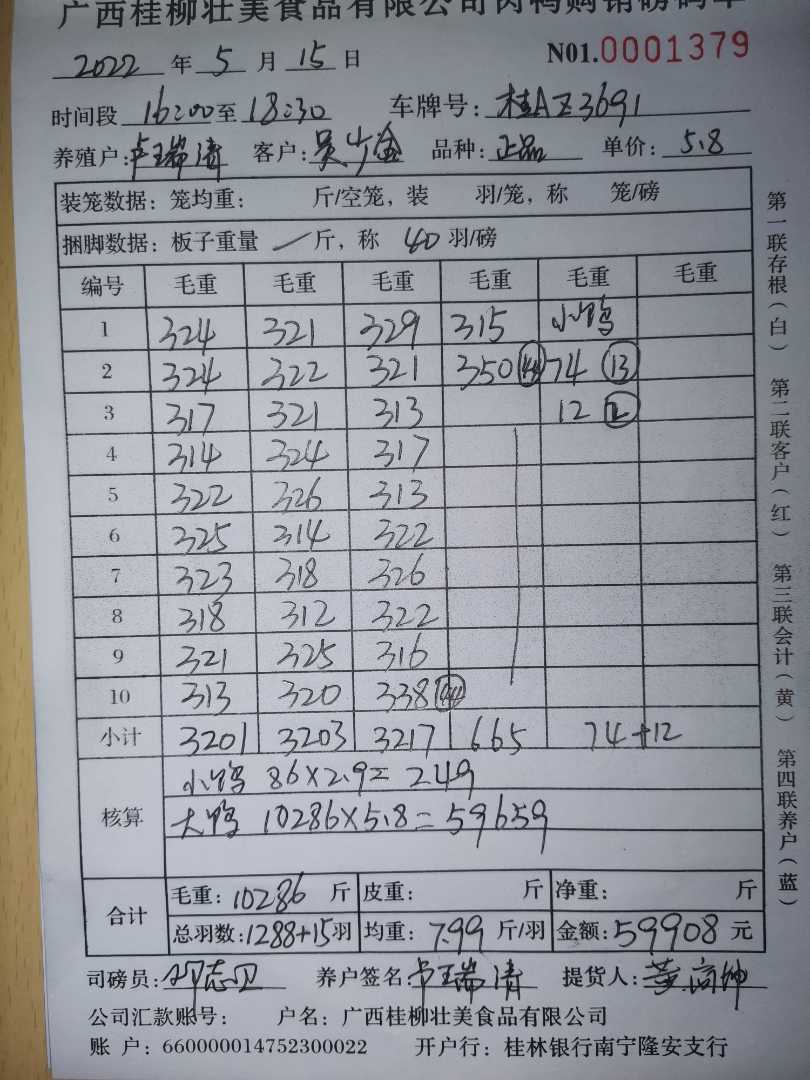 广西桂柳壮美食品有限公司肉鸭购销磅码单
2022 年 5 月 15 日 N01.0001379
时间段 16:00 至 18:30 车牌号: 桂AZ3691
养殖户: 卢瑞清 客户: 吴少金 品种: 正品 单价: 5.8
装笼数据: 笼均重: 斤/空笼, 装 羽/笼, 称 笼/磅
捆脚数据: 板子重量 / 斤, 称 40 羽/磅
编号 毛重 毛重 毛重 毛重 毛重 毛重
1 324 321 329 315 小鸭
2 324 322 321 350 (44) 74 (13)
3 317 321 313 12 (2)
4 314 324 317
5 322 326 313
6 325 314 322
7 323 318 326
8 318 312 322
9 321 325 316
10 313 320 338
小计 3201 3203 3217 665 74+12
核算 小鸭 86×2.9= 249
大鸭 10286×5.8=59659
合计 毛重: 10286 斤 皮重: 斤 净重: 斤
总羽数: 1288+15 羽 均重: 7.99 斤/羽 金额: 59908 元
司磅员: 养户签名: 卢瑞清 提货人:
公司汇款账号: 户名: 广西桂柳壮美食品有限公司
账 户: 660000014752300022 开户行: 桂林银行南宁隆安支行
第一联存根(白) 第二联客户(红) 第三联会计(黄) 第四联养户(蓝)